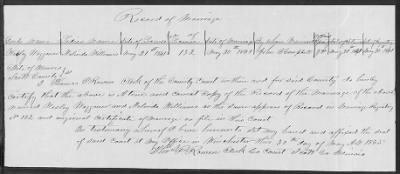 Record of Marriage
Males Name Females Name Date of License No. of License Date of Marriage By whom Married
Wesley Waggoner Malinda Williams May 21st 1865 132 May 20th 1865 John Campbell May 20th 1865
State of Illinois
Scott County } ss
I Thomas Rowen Clerk of the County Court within and for said County do hereby
certify that the above is a true and correct Copy of the Record of the Marriage of the above
named Wesley Waggoner and Malinda Williams as the same appears of Record in Marriage Register
at 132 and original Certificate of Marriage on file in this Court
In testimony whereof I have hereunto set my hand and affixed the seal
of said Court at My Office in Winchester this 30th day of May A.D. 1865
Rowen Clerk Co Court Scott Co Illinois